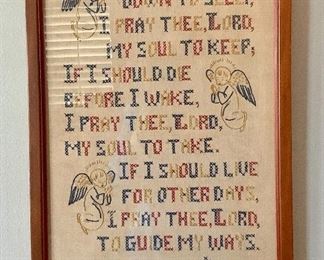 DOWN TO SLEEP,
I PRAY THEE, LORD,
MY SOUL TO KEEP;
IF I SHOULD DIE
BEFORE I WAKE,
I PRAY THEE, LORD,
MY SOUL TO TAKE.
IF I SHOULD LIVE
FOR OTHER DAYS,
I PRAY THEE, LORD,
TO GUIDE MY WAYS.